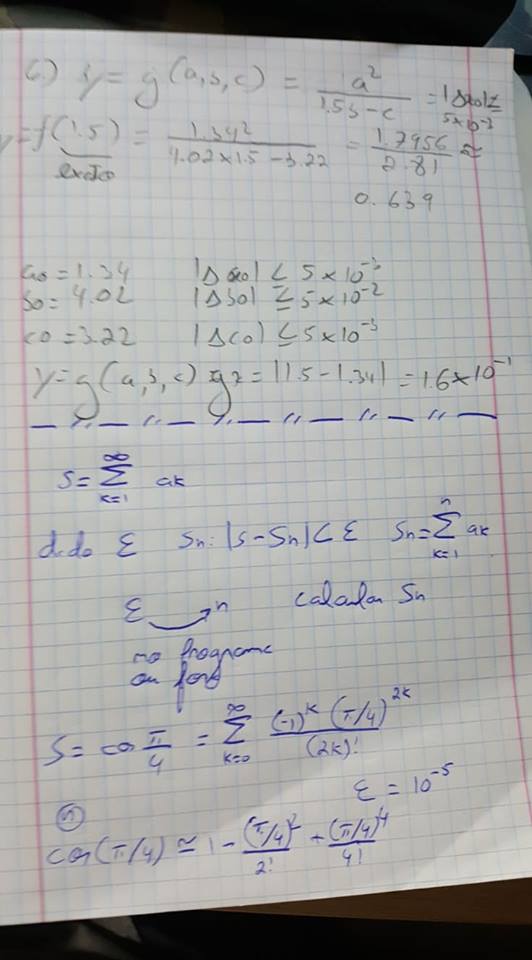 c) y = g(a,b,c) = a² / (1.5b - c) = |Δao| ≤ 5x10⁻³
y = f(1.5) = 1.34² / (4.02x1.5 - 3.22) = 1.7956 / 2.81 ≈
exato
0.639
ao = 1.34 |Δao| ≤ 5x10⁻³
bo = 4.02 |Δbo| ≤ 5x10⁻²
co = 3.22 |Δco| ≤ 5x10⁻³
y = g(a,b,c) = |1.5 - 1.34| = 1.6x10⁻¹
S = ∑_{k=1}^{∞} ak
dado ε Sn: |S - Sn| < ε Sn = ∑_{k=1}^{n} ak
ε → n calcular Sn
no programa
ou fora
S = cos π/4 = ∑_{k=0}^{∞} (-1)^k (π/4)^{2k} / (2k)!
ε = 10⁻⁵
n
cos(π/4) ≃ 1 - (π/4)²/2! + (π/4)⁴/4!